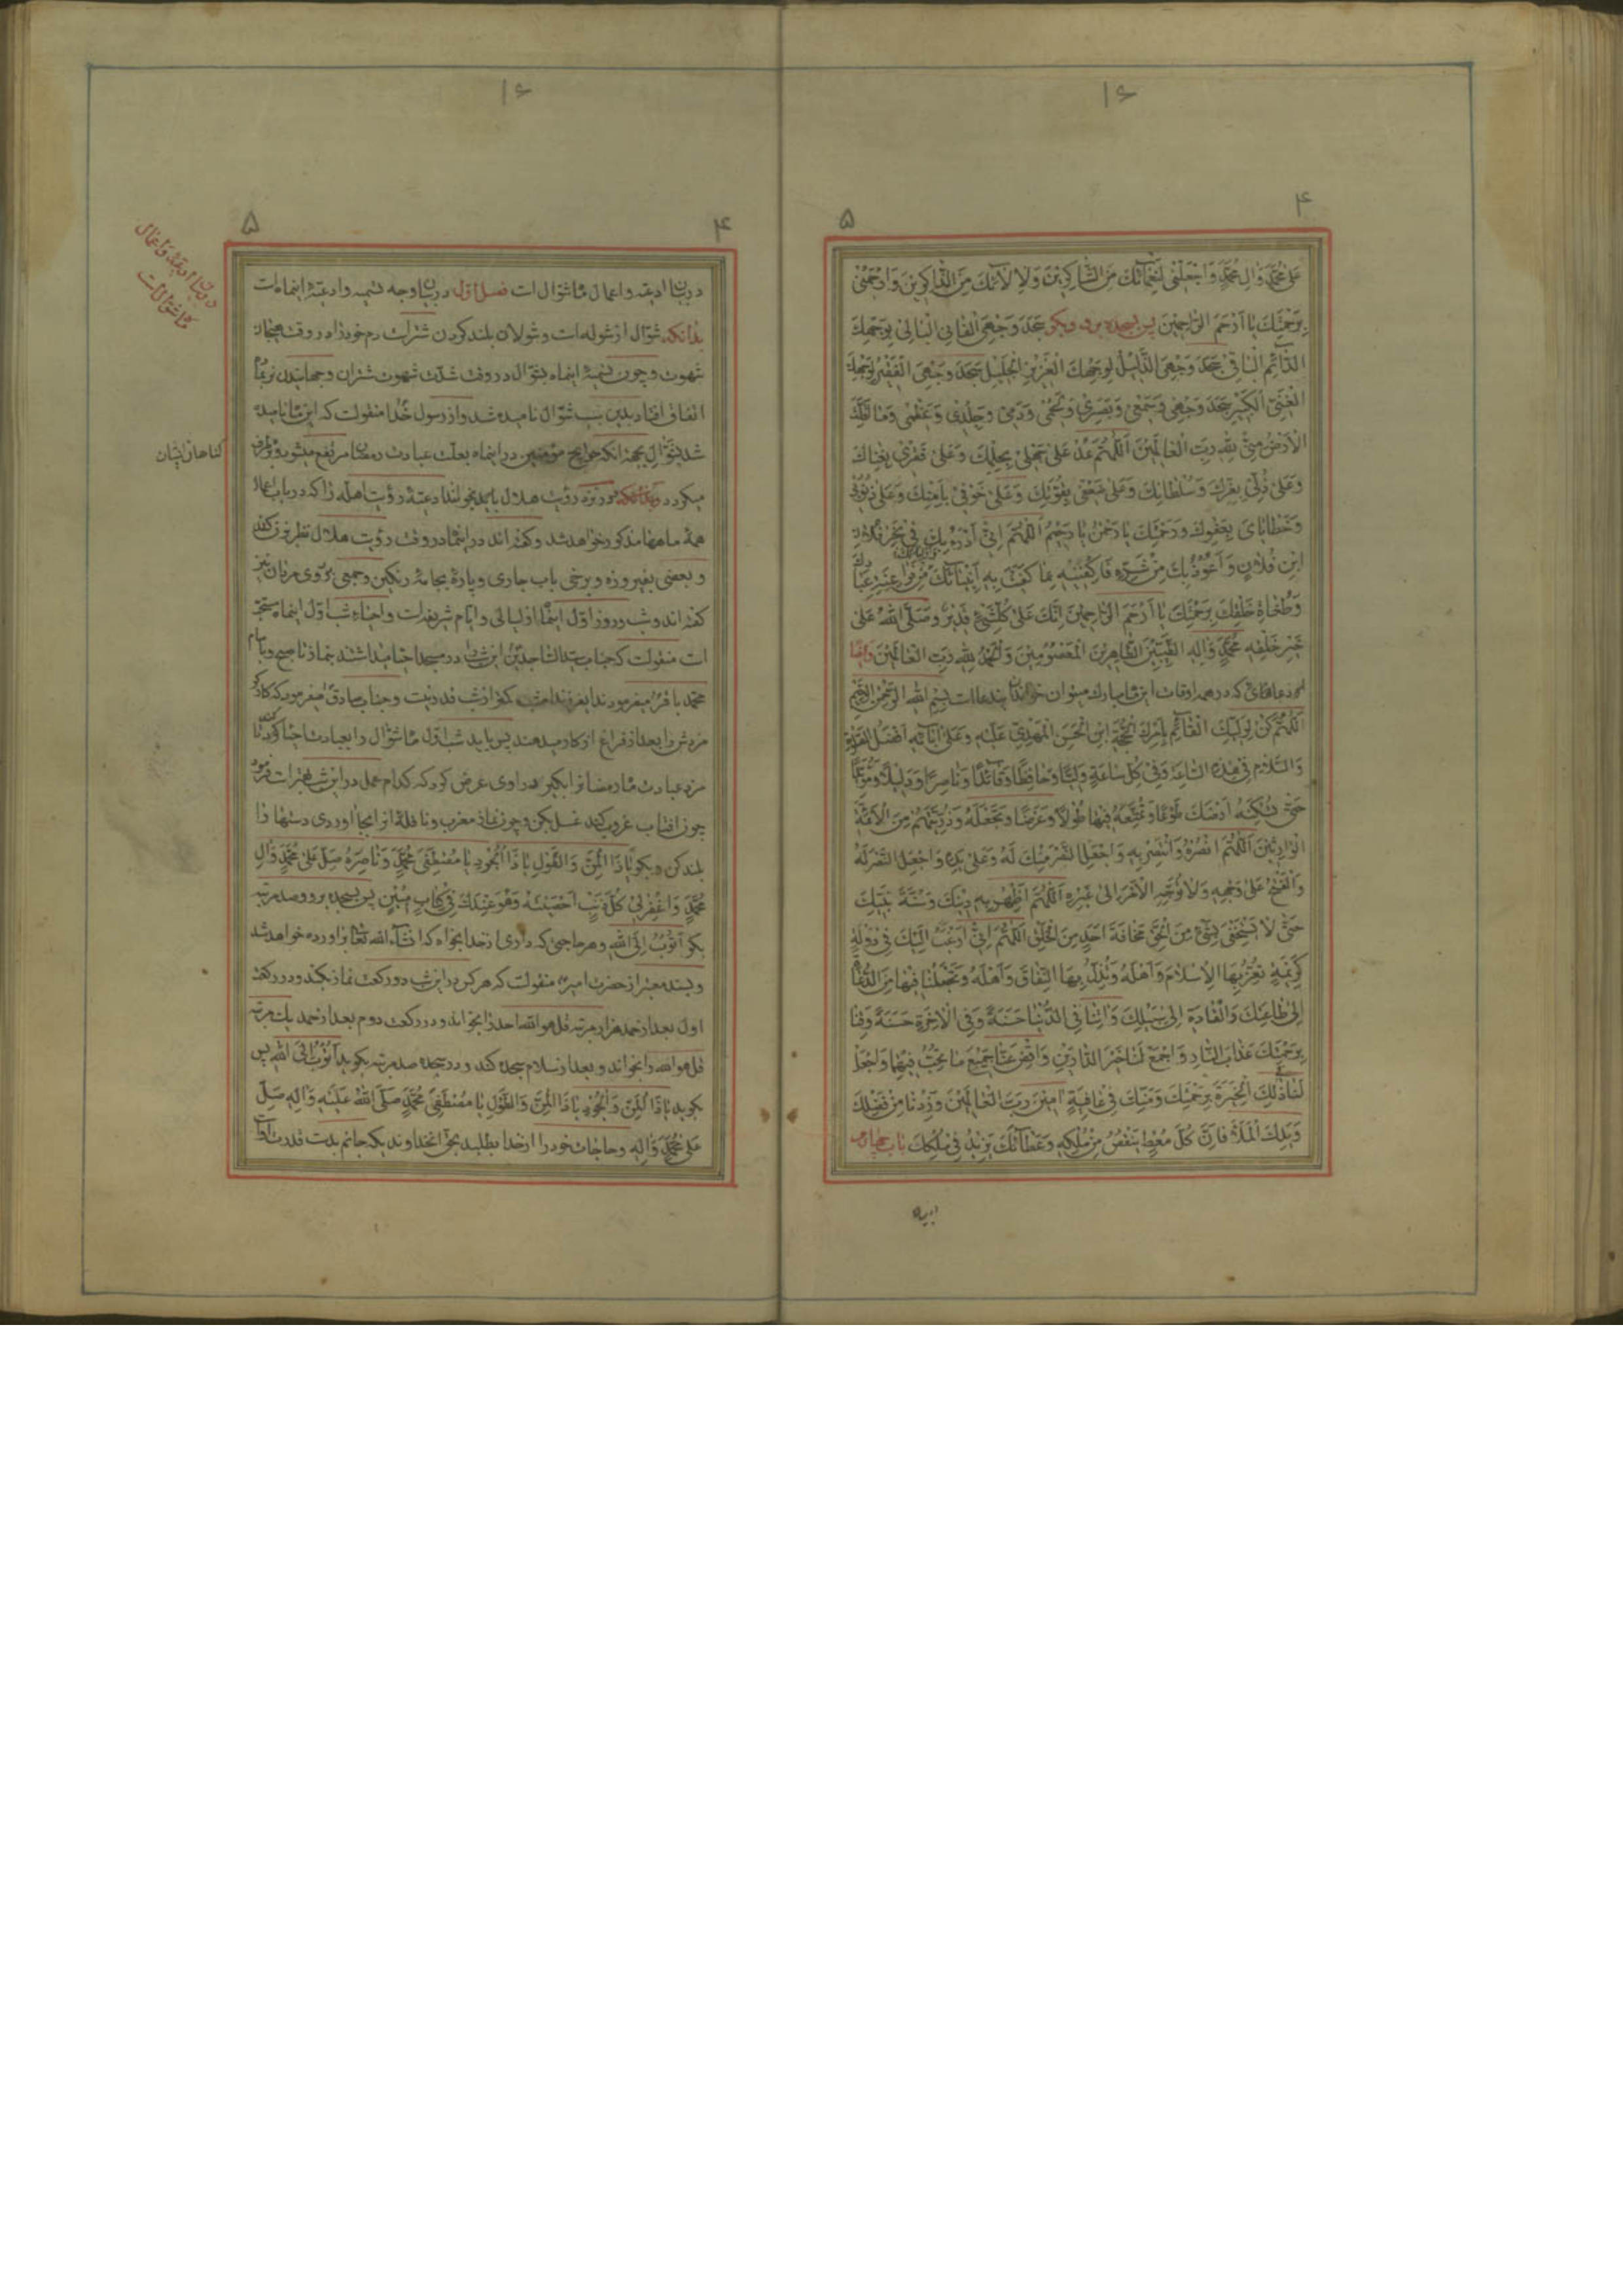 ۱۶
۴
۵
عَلٰی مُحَمَّدٍ وَاٰلِ مُحَمَّدٍ وَاجْعَلْنی لِنَعْمَآئِكَ مِنَ الشّاكِرینَ وَلِاٰلآئِكَ مِنَ الذّاكِرینَ وَارْحَمْنی
بِرَحْمَتِكَ یا اَرْحَمَ الرّاحِمینَ پس بسجده برو وبکو سَجَدَ وَجْهِیَ الْفانِی الْبالی لِوَجْهِكَ
الدّآئِمِ الْباقی سَجَدَ وَجْهِیَ الذَّلیلُ لِوَجْهِكَ الْعَزیزِ الْجَلیلِ سَجَدَ وَجْهِیَ الْفَقیرُ لِوَجْهِكَ
الْغَنِیِّ الْكَبیرِ سَجَدَ وَجْهی وَسَمْعی وَبَصَری وَلَحْمی وَدَمی وَجِلْدی وَعَظْمی وَما اَقَلَّتِ
الْاَرْضُ مِنّی لِلّٰهِ رَبِّ الْعالَمینَ اَللّٰهُمَّ عُدْ عَلٰی جَهْلی بِحِلْمِكَ وَعَلٰی فَقْری بِغِناكَ
وَعَلٰی ذُلّی بِعِزِّكَ وَسُلْطانِكَ وَعَلٰی ضَعْفی بِقُوَّتِكَ وَعَلٰی خَوْفی بِاَمْنِكَ وَعَلٰی ذُنُوبی
وَخَطایایَ بِعَفْوِكَ وَرَحْمَتِكَ یا رَحْمٰنُ یا رَحیمُ اَللّٰهُمَّ اِنّی اَدْرَءُ بِكَ فی نَحْرِ فُلانِ
ابْنِ فُلانٍ وَاَعُوذُ بِكَ مِنْ شَرِّهِ فَاكْفِنیهِ بِما كَفَیْتَ بِهِ اَنْبِیآئَكَ مِنْ فَراعِنَةِ عِبادِكَ
وَطُغاةِ خَلْقِكَ بِرَحْمَتِكَ یا اَرْحَمَ الرّاحِمینَ اِنَّكَ عَلٰی كُلِّ شَیْءٍ قَدیرٌ وَصَلَّی اللّٰهُ عَلٰی
خَیْرِ خَلْقِهِ مُحَمَّدٍ وَاٰلِهِ الطَّیِّبینَ الطّاهِرینَ الْمَعْصُومینَ وَالْحَمْدُ لِلّٰهِ رَبِّ الْعالَمینَ وامّا
دعاهائی که در همه اوقات این ماه مبارك میتوان خواند این دعا است بِسْمِ اللّٰهِ الرَّحْمٰنِ الرَّحیمِ
اَللّٰهُمَّ كُنْ لِوَلِیِّكَ الْقآئِمِ بِاَمْرِكَ الْحُجَّةِ ابْنِ الْحَسَنِ الْمَهْدِیِّ عَلَیْهِ وَعَلٰی اٰبآئِهِ اَفْضَلُ الصَّلٰوةِ
وَالسَّلامِ فی هٰذِهِ السّاعَةِ وَفی كُلِّ ساعَةٍ وَلِیًّا وَحافِظًا وَقآئِدًا وَناصِرًا وَدَلیلاً وَمُؤَیِّدًا
حَتّٰی تُسْكِنَهُ اَرْضَكَ طَوْعًا وَتُمَتِّعَهُ فیها طُولاً وَعَرْضًا وَتَجْعَلَهُ وَذُرِّیَّتَهُ مِنَ الْاَئِمَّةِ
الْوارِثینَ اَللّٰهُمَّ انْصُرْهُ وَانْتَصِرْ بِهِ وَاجْعَلِ النَّصْرَ مِنْكَ لَهُ وَعَلٰی یَدِهِ وَاجْعَلِ النَّصْرَ لَهُ
وَالْفَتْحَ عَلٰی وَجْهِهِ وَلا تُوَجِّهِ الْاَمْرَ اِلٰی غَیْرِهِ اَللّٰهُمَّ اَظْهِرْ بِهِ دینَكَ وَسُنَّةَ نَبِیِّكَ
حَتّٰی لا یَسْتَخْفِیَ بِشَیْءٍ مِنَ الْحَقِّ مَخافَةَ اَحَدٍ مِنَ الْخَلْقِ اَللّٰهُمَّ اِنّی اَرْغَبُ اِلَیْكَ فی دَوْلَةٍ
كَریمَةٍ تُعِزُّ بِهَا الْاِسْلامَ وَاَهْلَهُ وَتُذِلُّ بِهَا النِّفاقَ وَاَهْلَهُ وَتَجْعَلُنا فیها مِنَ الدُّعاةِ
اِلٰی طاعَتِكَ وَالْقادَةِ اِلٰی سَبیلِكَ وَاٰتِنا فِی الدُّنْیا حَسَنَةً وَفِی الْاٰخِرَةِ حَسَنَةً وَقِنا
بِرَحْمَتِكَ عَذابَ النّارِ وَاجْمَعْ لَنا خَیْرَ الدّارَیْنِ وَاقْضِ عَنّا جَمیعَ ما تُحِبُّ فیهِما وَاجْعَلْ
لَنا فی ذٰلِكَ الْخِیَرَةَ بِرَحْمَتِكَ وَمَنِّكَ فی عافِیَةٍ اٰمینَ رَبَّ الْعالَمینَ وَزِدْنا مِنْ فَضْلِكَ
وَیَدِكَ الْمَلَاْءِ فَاِنَّ كُلَّ مُعْطٍ یَنْقُصُ مِنْ مُلْكِهِ وَعَطآئُكَ یَزیدُ فی مُلْكِكَ باب چهارم
۱۶
۴
۵
در بیان ادعیه واعمال ماه شوّال است فصل اول در بیان وجه تسمیه وادعیهٔ اینماه است
بدانکه شوّال از شوله است وشولان بلند کردن شتر است دم خود را در وقت هیجان
شهوت وچون تسمیهٔ اینماه بشوّال در وقت شدّت شهوت شتران وجهانیدن نر بماده
اتفاق افتاد بدین سبب شوّال نامیده شد واز رسول خدا منقولست که این ماه نامیده
شد بشوّال بجهة انکه حوایج مؤمنین در اینماه بعلّت عبادت رمضان مرتفع میشود
میکردد هلال باید بخوانند ادعیهٔ رؤیت اهله را که در باب اعمال
همهٔ ماهها مذکور خواهد شد وکفته اند در اینماه در وقت رؤیت هلال نظر
وبعضی بفیروزه وبرخی باب جاری وپارهٔ بجامهٔ رنکین وجمعی بروی مردان نیز
کفته اند وشب وروز اوّل اینماه از لیالی وایام شریفه است واحیاء شب اوّل اینماه
است منقولست که جناب سیّد السّاجدین این شب را در مسجد احیا میداشتند بنماز تا صبح وبامام
محمّد باقر میفرمودند ایفرزند امشب کمتر از شب قدر نیست وجناب صادق میفرمود که
مزدش را بعد از فراغ از کار میدهند پس باید شب اوّل ماه شوّال را بعبادت احیا کرد تا
مزد عبادت ماه رمضانرا بکیرد راوی عرض کرد که کدام عمل در این شب بهتر است فرمود
چون افتاب غروب کند غسل بکن وچون نماز مغرب ونافلهٔ انرا بجا اوردی دستها را
بلند کن وبکو یا ذَا الْمَنِّ وَالطَّوْلِ یا ذَا الْجُودِ یا مُصْطَفِیَ مُحَمَّدٍ وَناصِرَهُ صَلِّ عَلٰی مُحَمَّدٍ وَاٰلِ
مُحَمَّدٍ وَاغْفِرْ لی كُلَّ ذَنْبٍ اَحْصَیْتَهُ وَهُوَ عِنْدَكَ فی كِتابٍ مُبینٍ پس بسجده برو وصد مرتبه
بکو اَتُوبُ اِلَی اللّٰهِ وهر حاجتی که داری از خدا بخواه که انشاء الله تعالی براورده خواهد شد
وبسند معتبر از حضرت امیر منقولست که هر کس در این شب دو رکعت نماز بکند ودر رکعت
اول بعد از حمد هزار مرتبه قل هو الله احد را بخواند ودر رکعت دوم بعد از حمد یك مرتبه
قل هو الله را بخواند وبعد از سلام سجده کند ودر سجده صد مرتبه بکوید اَتُوبُ اِلَی اللّٰهِ پس
بکوید یا ذَا الْمَنِّ وَالْجُودِ یا ذَا الْمَنِّ وَالطَّوْلِ یا مُصْطَفِیَ مُحَمَّدٍ صَلَّی اللّٰهُ عَلَیْهِ وَاٰلِهِ صَلِّ
عَلٰی مُحَمَّدٍ وَاٰلِهِ وحاجات خود را از خدا بطلبد بحق انخداوندیکه جانم بدست قدرت اوست
در بیان ادعیه واعمال
ماه شوّال است
کناهان ایشان